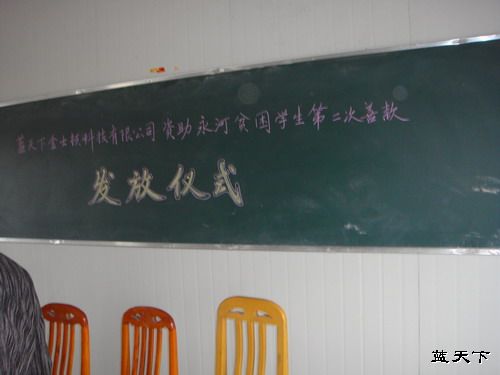 蓝天下金士顿科技有限公司资助永河贫困学生第二次善款
发放仪式
蓝天下